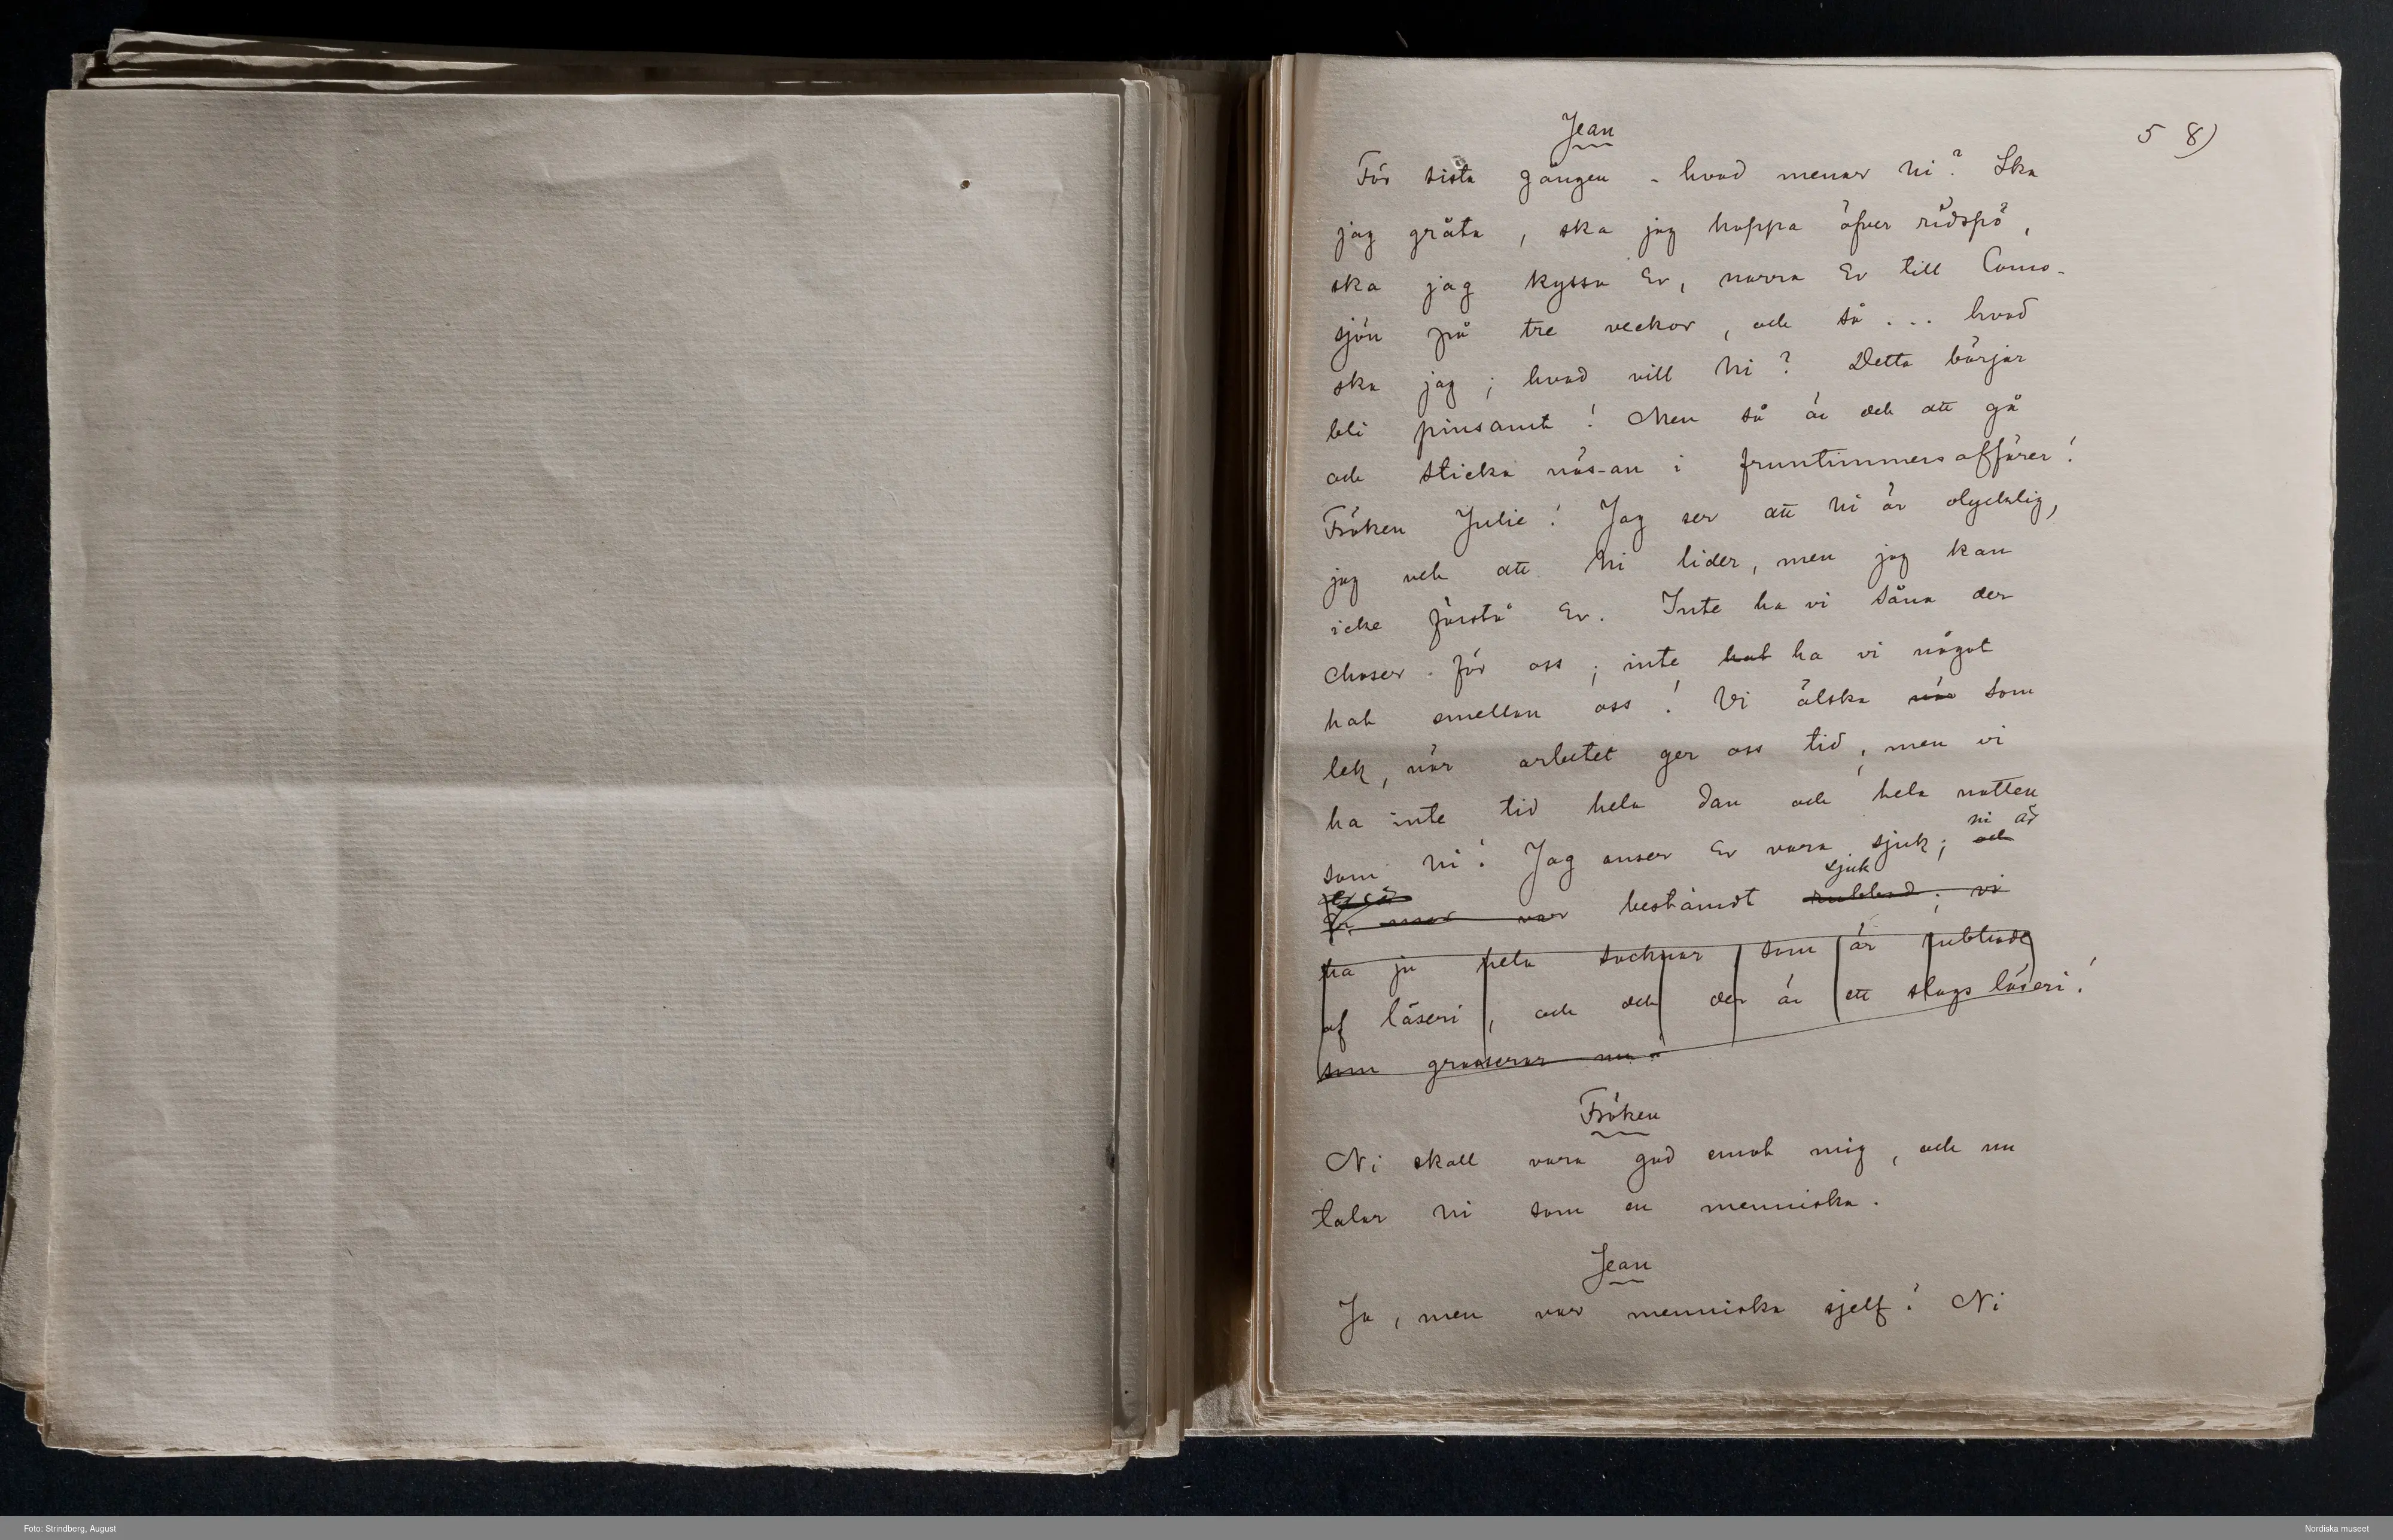 58)
Jean
För sista gången - hvad menar Ni? Ska
jag gråta, ska jag hoppa öfver ridspö,
ska jag kyssa Er, narra Er till Como-
sjön på tre veckor, och så ... hvad
ska jag; hvad vill Ni? Detta börjar
bli pinsamt! Men så är det att gå
och sticka näs-an i fruntimmersaffärer!
Fröken Julie! Jag ser att Ni är olycklig,
jag vet att Ni lider, men jag kan
icke förstå Er. Inte ha vi såna der
choser för oss; inte hat ha vi något
hat emellan oss! Vi älska när som
lek, när arbetet ger oss tid, men vi
ha inte tid hela dan och hela natten
som Ni! Jag anser Er vara sjuk; och
ni är
sjuk
mor var bestämdt rubbad; vi
ha ju hela socknar som är rubbade
af läseri, och det der är ett slags läseri!
som grasserar nu
Fröken
Ni skall vara god emot mig, och nu
talar Ni som en menniska.
Jean
Ja, men var menniska sjelf! Ni
Foto: Strindberg, August
Nordiska museet